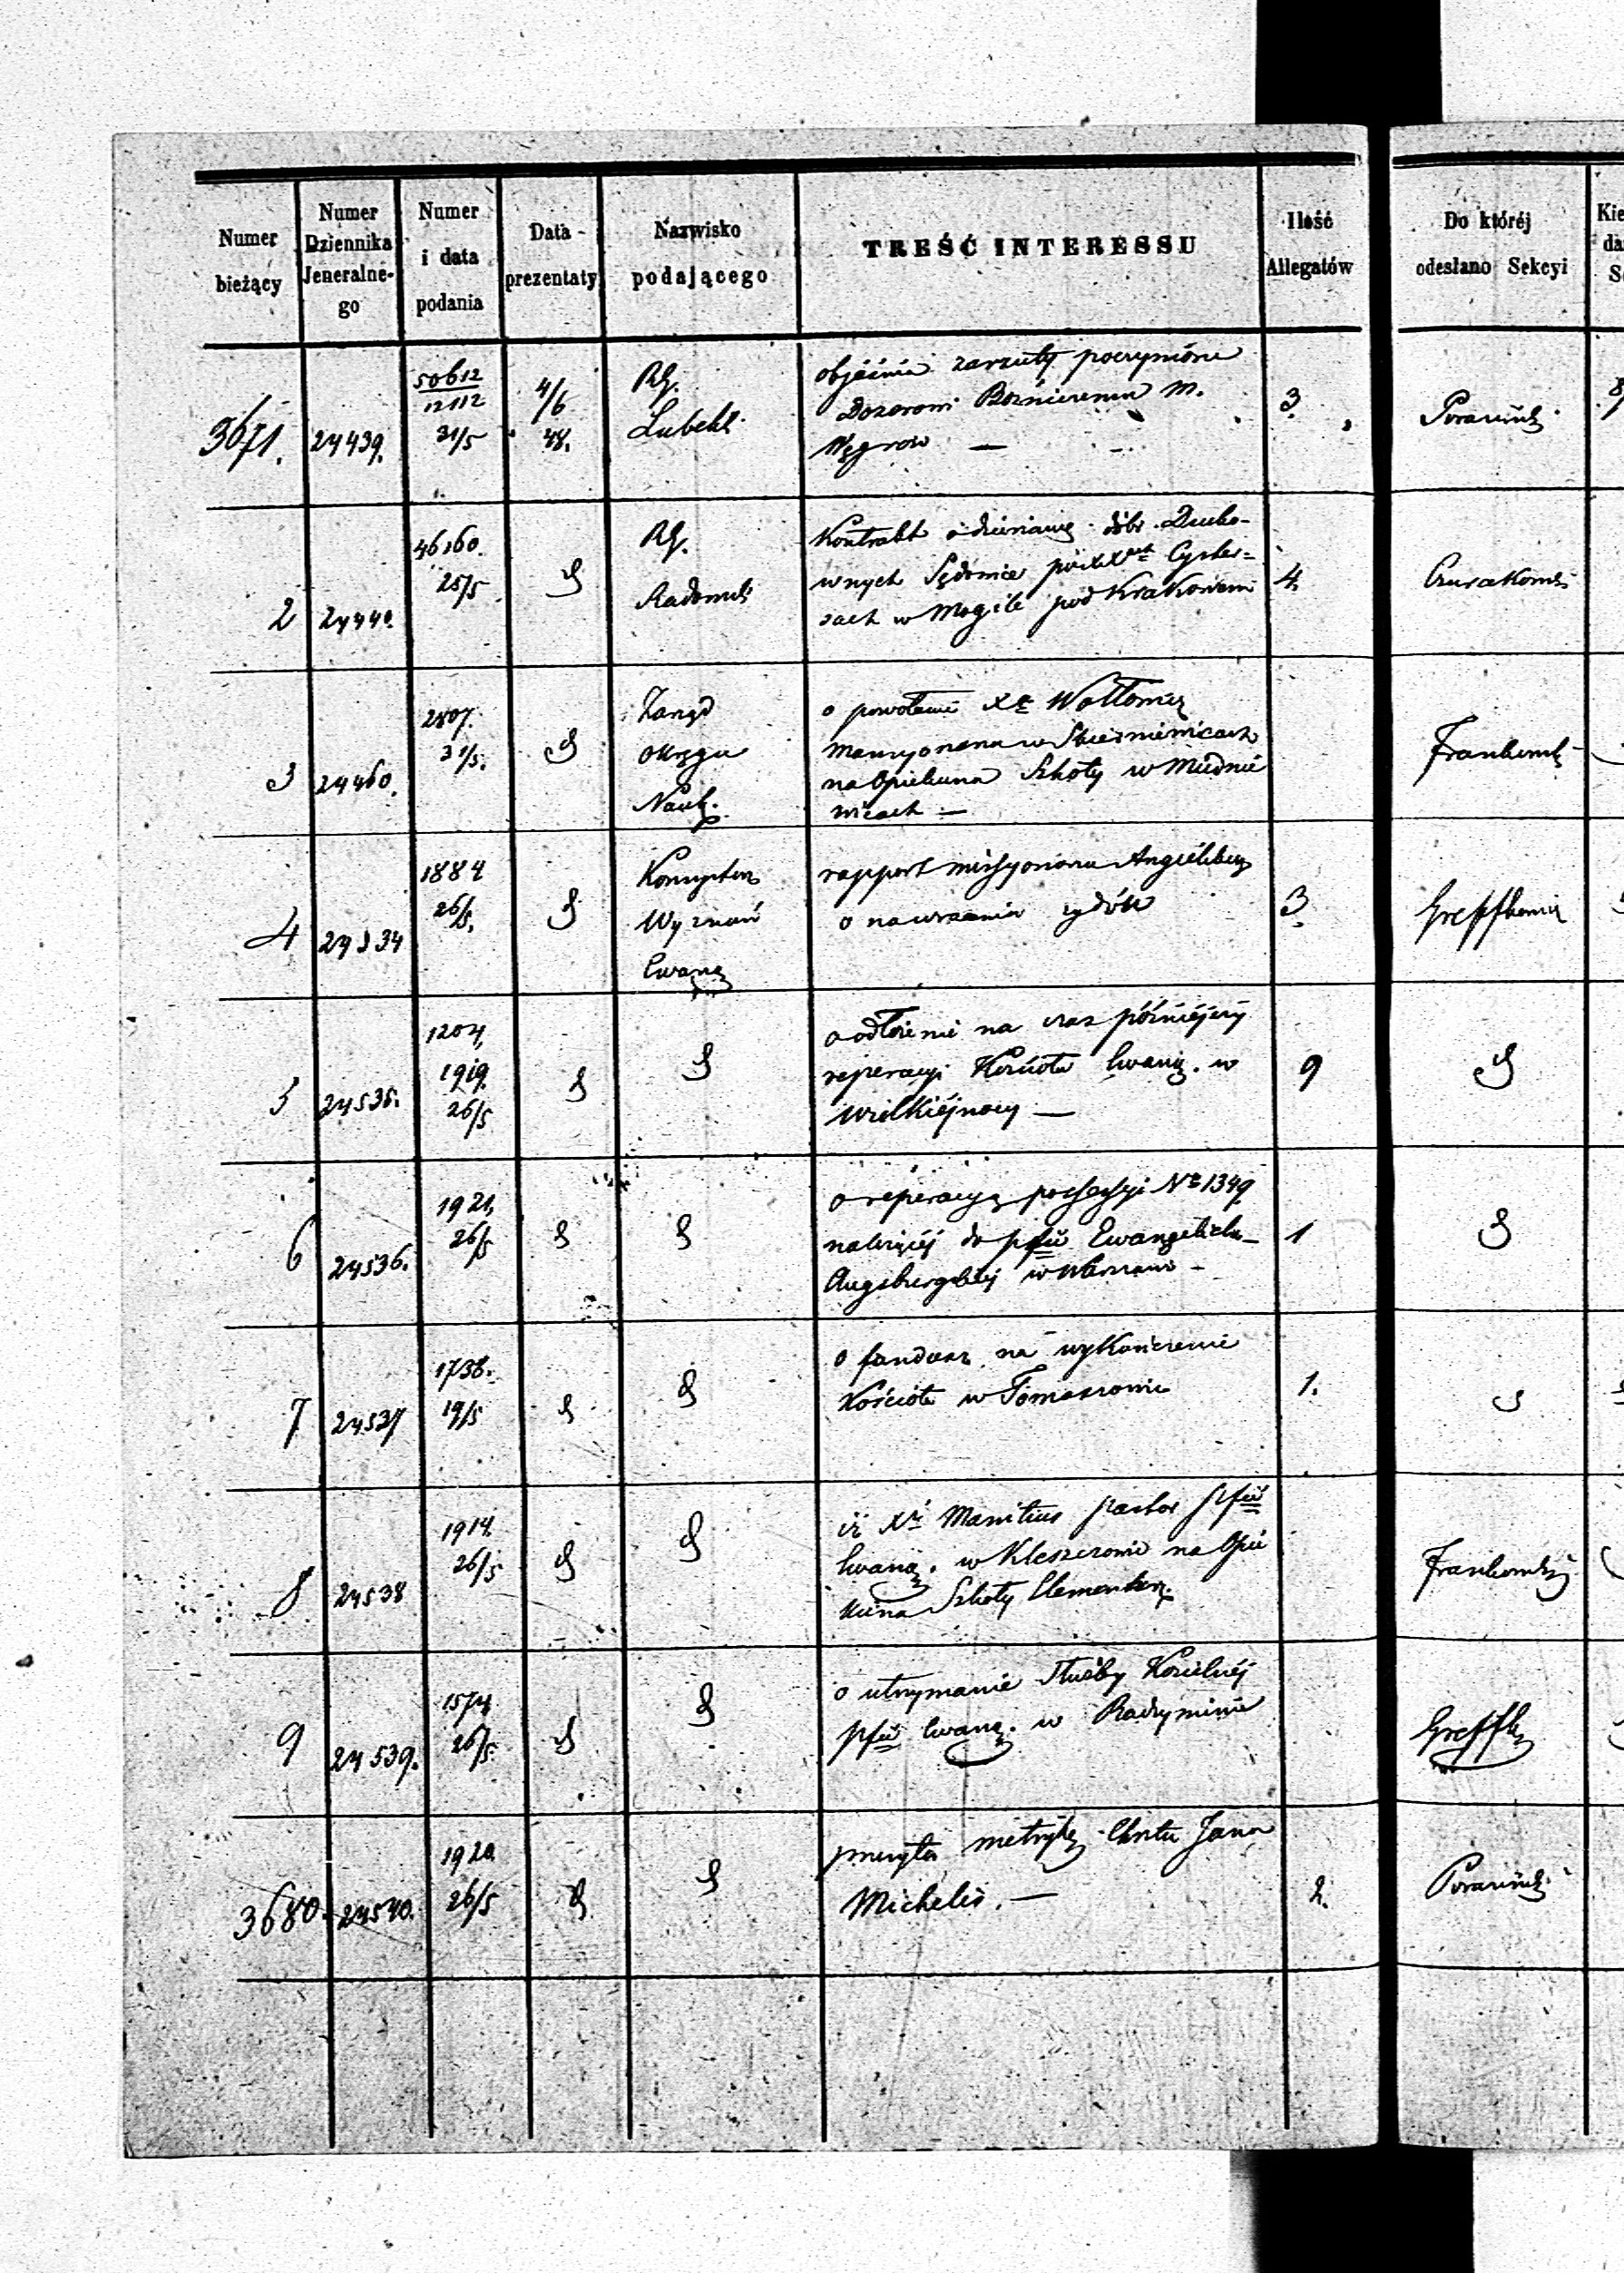 Numer bieżący
Numer Dziennika Jeneralne-go
Numer i data podania
Data prezentaty
Nazwisko podającego
TREŚĆ INTERESSU
Ilość Allegatów
Do któréj odesłano Sekcyi
3671. 24439. 50612/12112 31/5 4/6 48. RG. Lubels.
objaśnia zarzuty poczynione
Dozorowi Bożniczemu m.
Węgrow —
3.
2 24440. 46160. 25/5 RG. Radoms.
Kontrakt o dzierżawę dóbr Ducho-
wnych
w Mogile pod Krakowem
4.
3 24460. 2807. 31/5. Zarząd Okręgu Nauk.
o powołanie Xa
mansyonarza w
na Opiekuna Szkoły w
nicach —
4 24534 1884 26/5. Konsystorz Wyznań Ewang.
rapport missyonarzy Angielskich
o nawracaniu żydów
3.
5 24535. 1204, 1919. 26/5
o odłożenie na czas późniéjszy
reperacyi Kościoła Ewang. w
Wielkiéjnocy —
9
6 24536. 1921, 26/5
o reperacyą possessyi No 1349
należącéj do pfii Ewangelicko-
Augsburgskiéj w Warszawie —
1
7 24537 1738. 19/5
o fundusz na wykończenie
Kościoła w Tomaszowie
1.
8 24538 1914. 26/5
iż X. Manitius pastor pfii
Ewang. w Kleszczowie na Opie
kuna Szkoły Elementar.
9 24539. 1574 26/5
o utrzymanie Służby Kościelnéj
pfii Ewang. w Radzyminie
3680. 24540. 1920. 26/5
przesyła metrykę Chrztu Jana
Michelis. —
2.